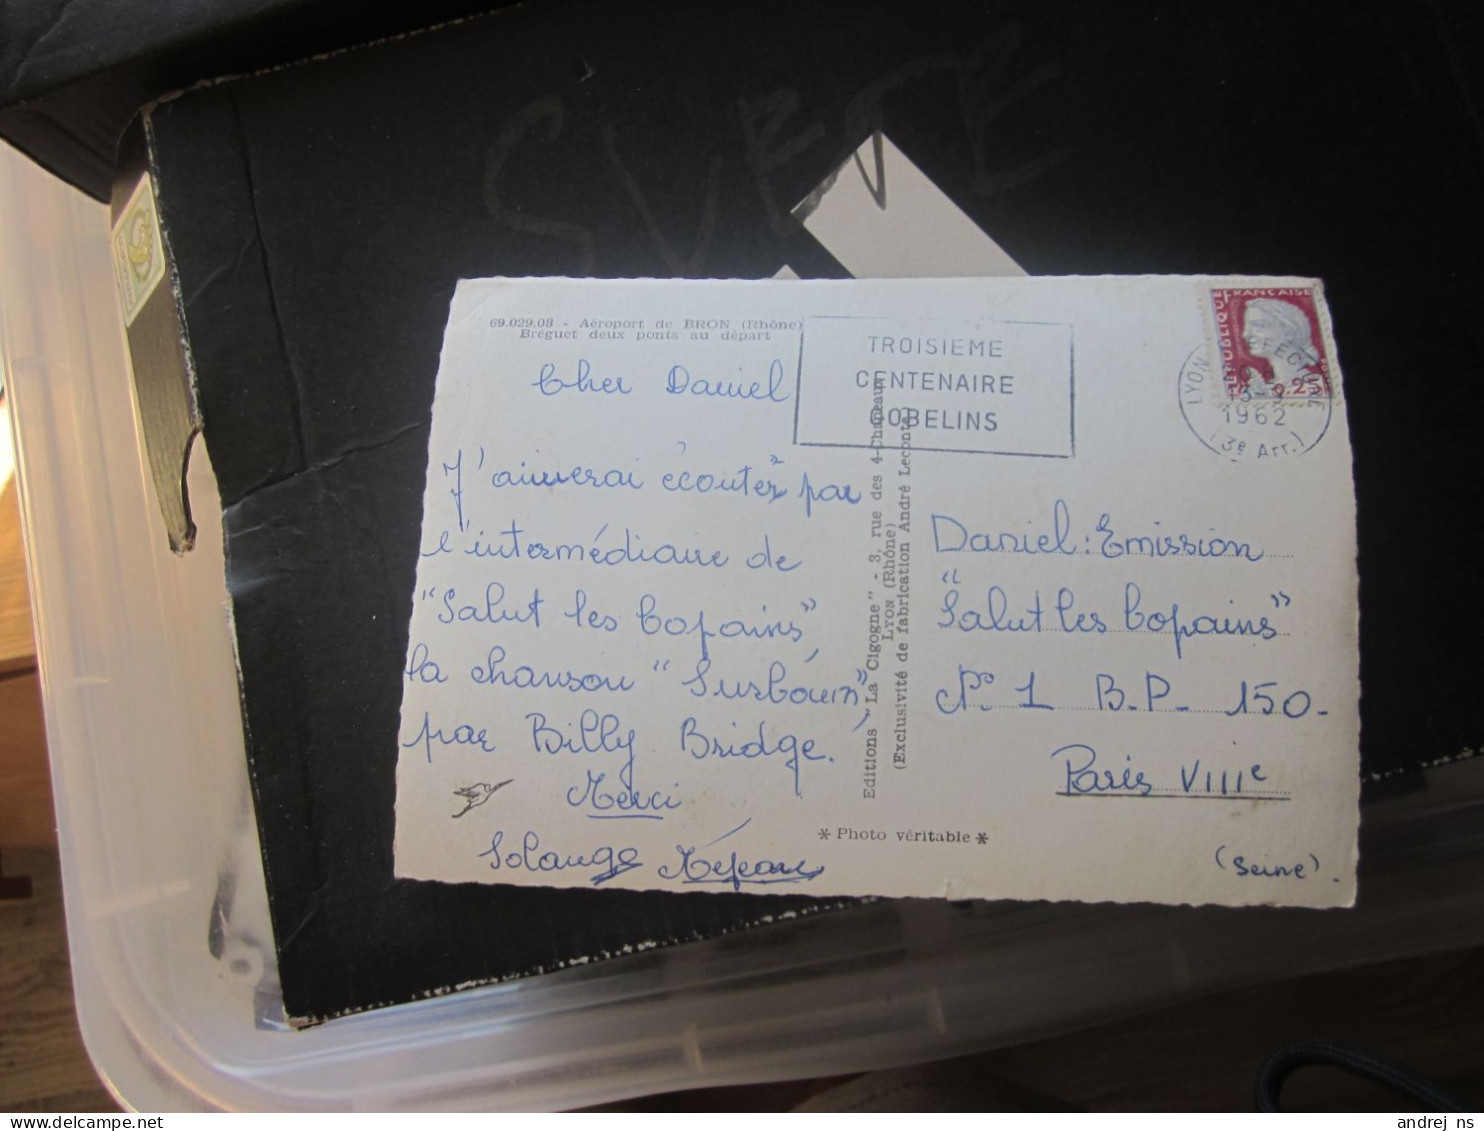 SVETE
69.029.08 - Aéroport de BRON (Rhône)
Bréguet deux ponts au départ
TROISIEME
CENTENAIRE
GOBELINS
REPUBLIQUE FRANCAISE
LYON PREFECTURE
1962
(3e Arr.)
Cher Daniel
J'aimerai écouter par
l'intermédiaire de
"Salut les Copains"
la chanson "Surboum"
par Billy Bridge.
Merci
Solange
Editions "La Cigogne" - 3, rue des 4-Chapeaux
LYON (Rhône)
(Exclusivité de fabrication André Leconte)
* Photo véritable *
Daniel: Emission
"Salut les Copains"
N° 1 B.P. 150.
Paris VIIIe
(Seine).
andrej_ns